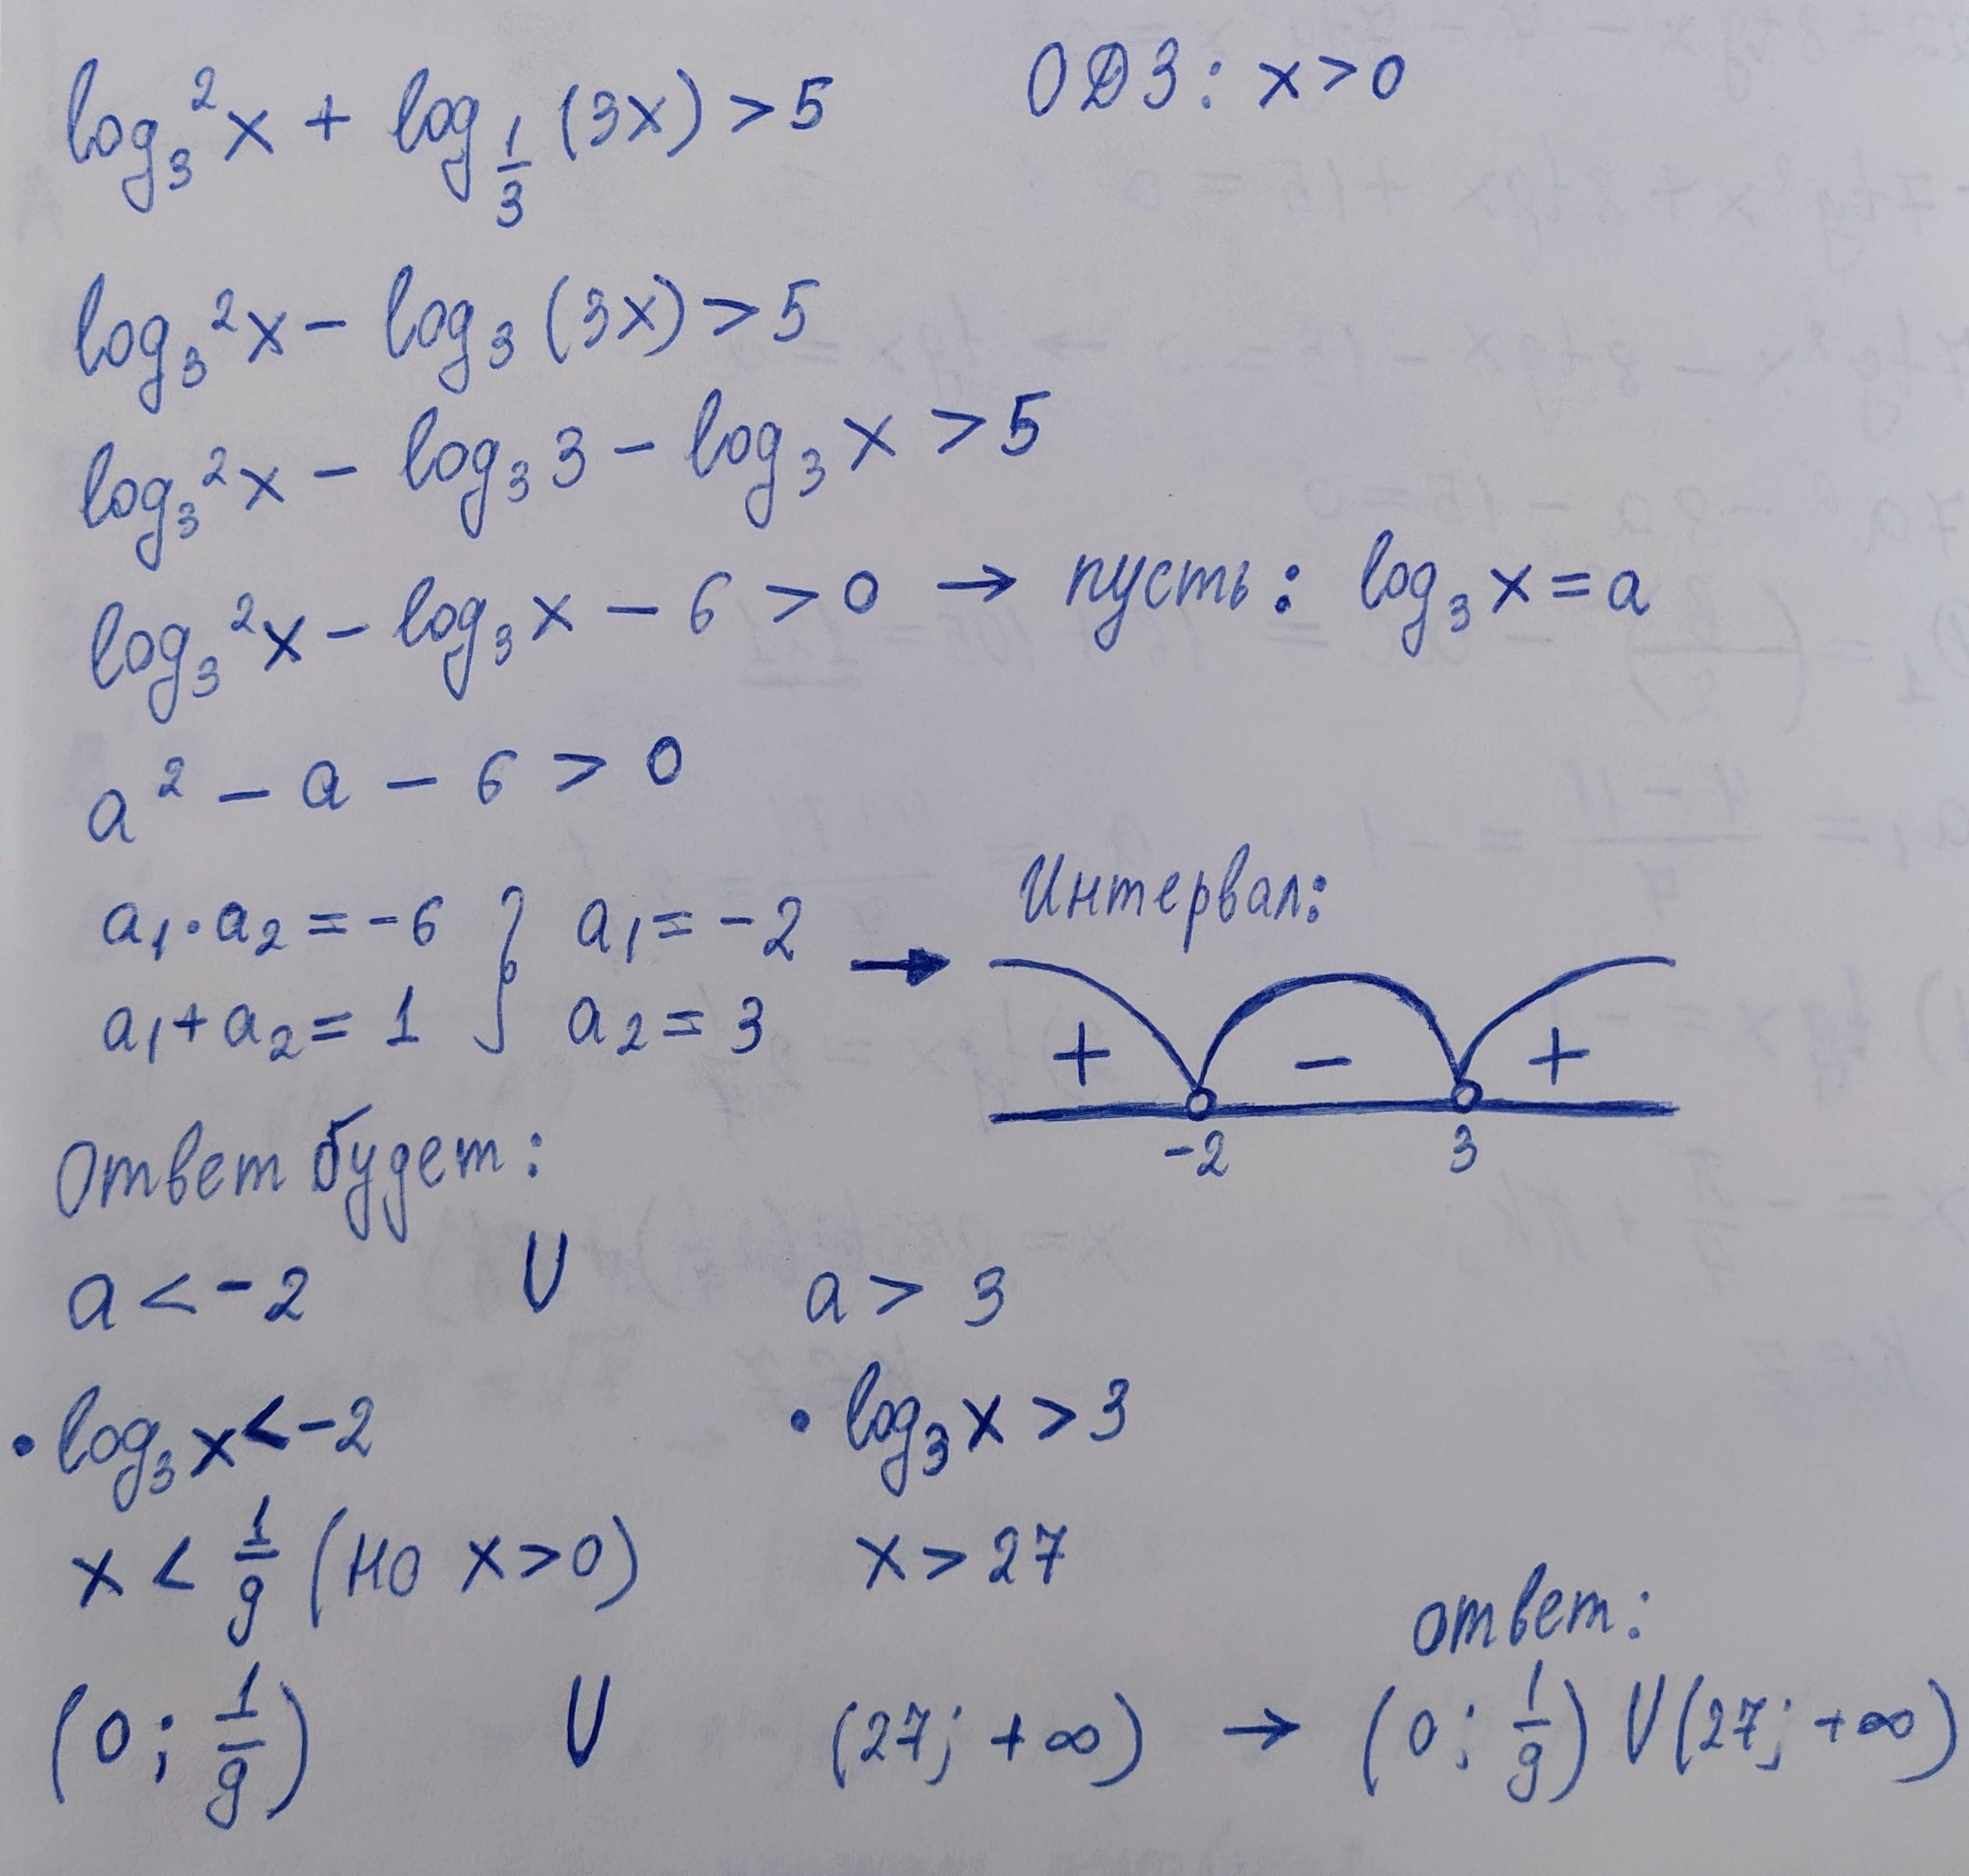 log₃²x + log_{1/3}(3x) > 5 ОДЗ: x > 0
log₃²x − log₃(3x) > 5
log₃²x − log₃3 − log₃x > 5
log₃²x − log₃x − 6 > 0 → пусть: log₃x = a
a² − a − 6 > 0
Интервал:
a₁·a₂ = −6 } a₁ = −2 →
a₁ + a₂ = 1 } a₂ = 3
+ − +
−2 3
Ответ будет:
a < −2 U a > 3
• log₃x < −2 • log₃x > 3
x < 1/9 (но x > 0) x > 27
ответ:
(0; 1/9) U (27; +∞) → (0; 1/9) U (27; +∞)